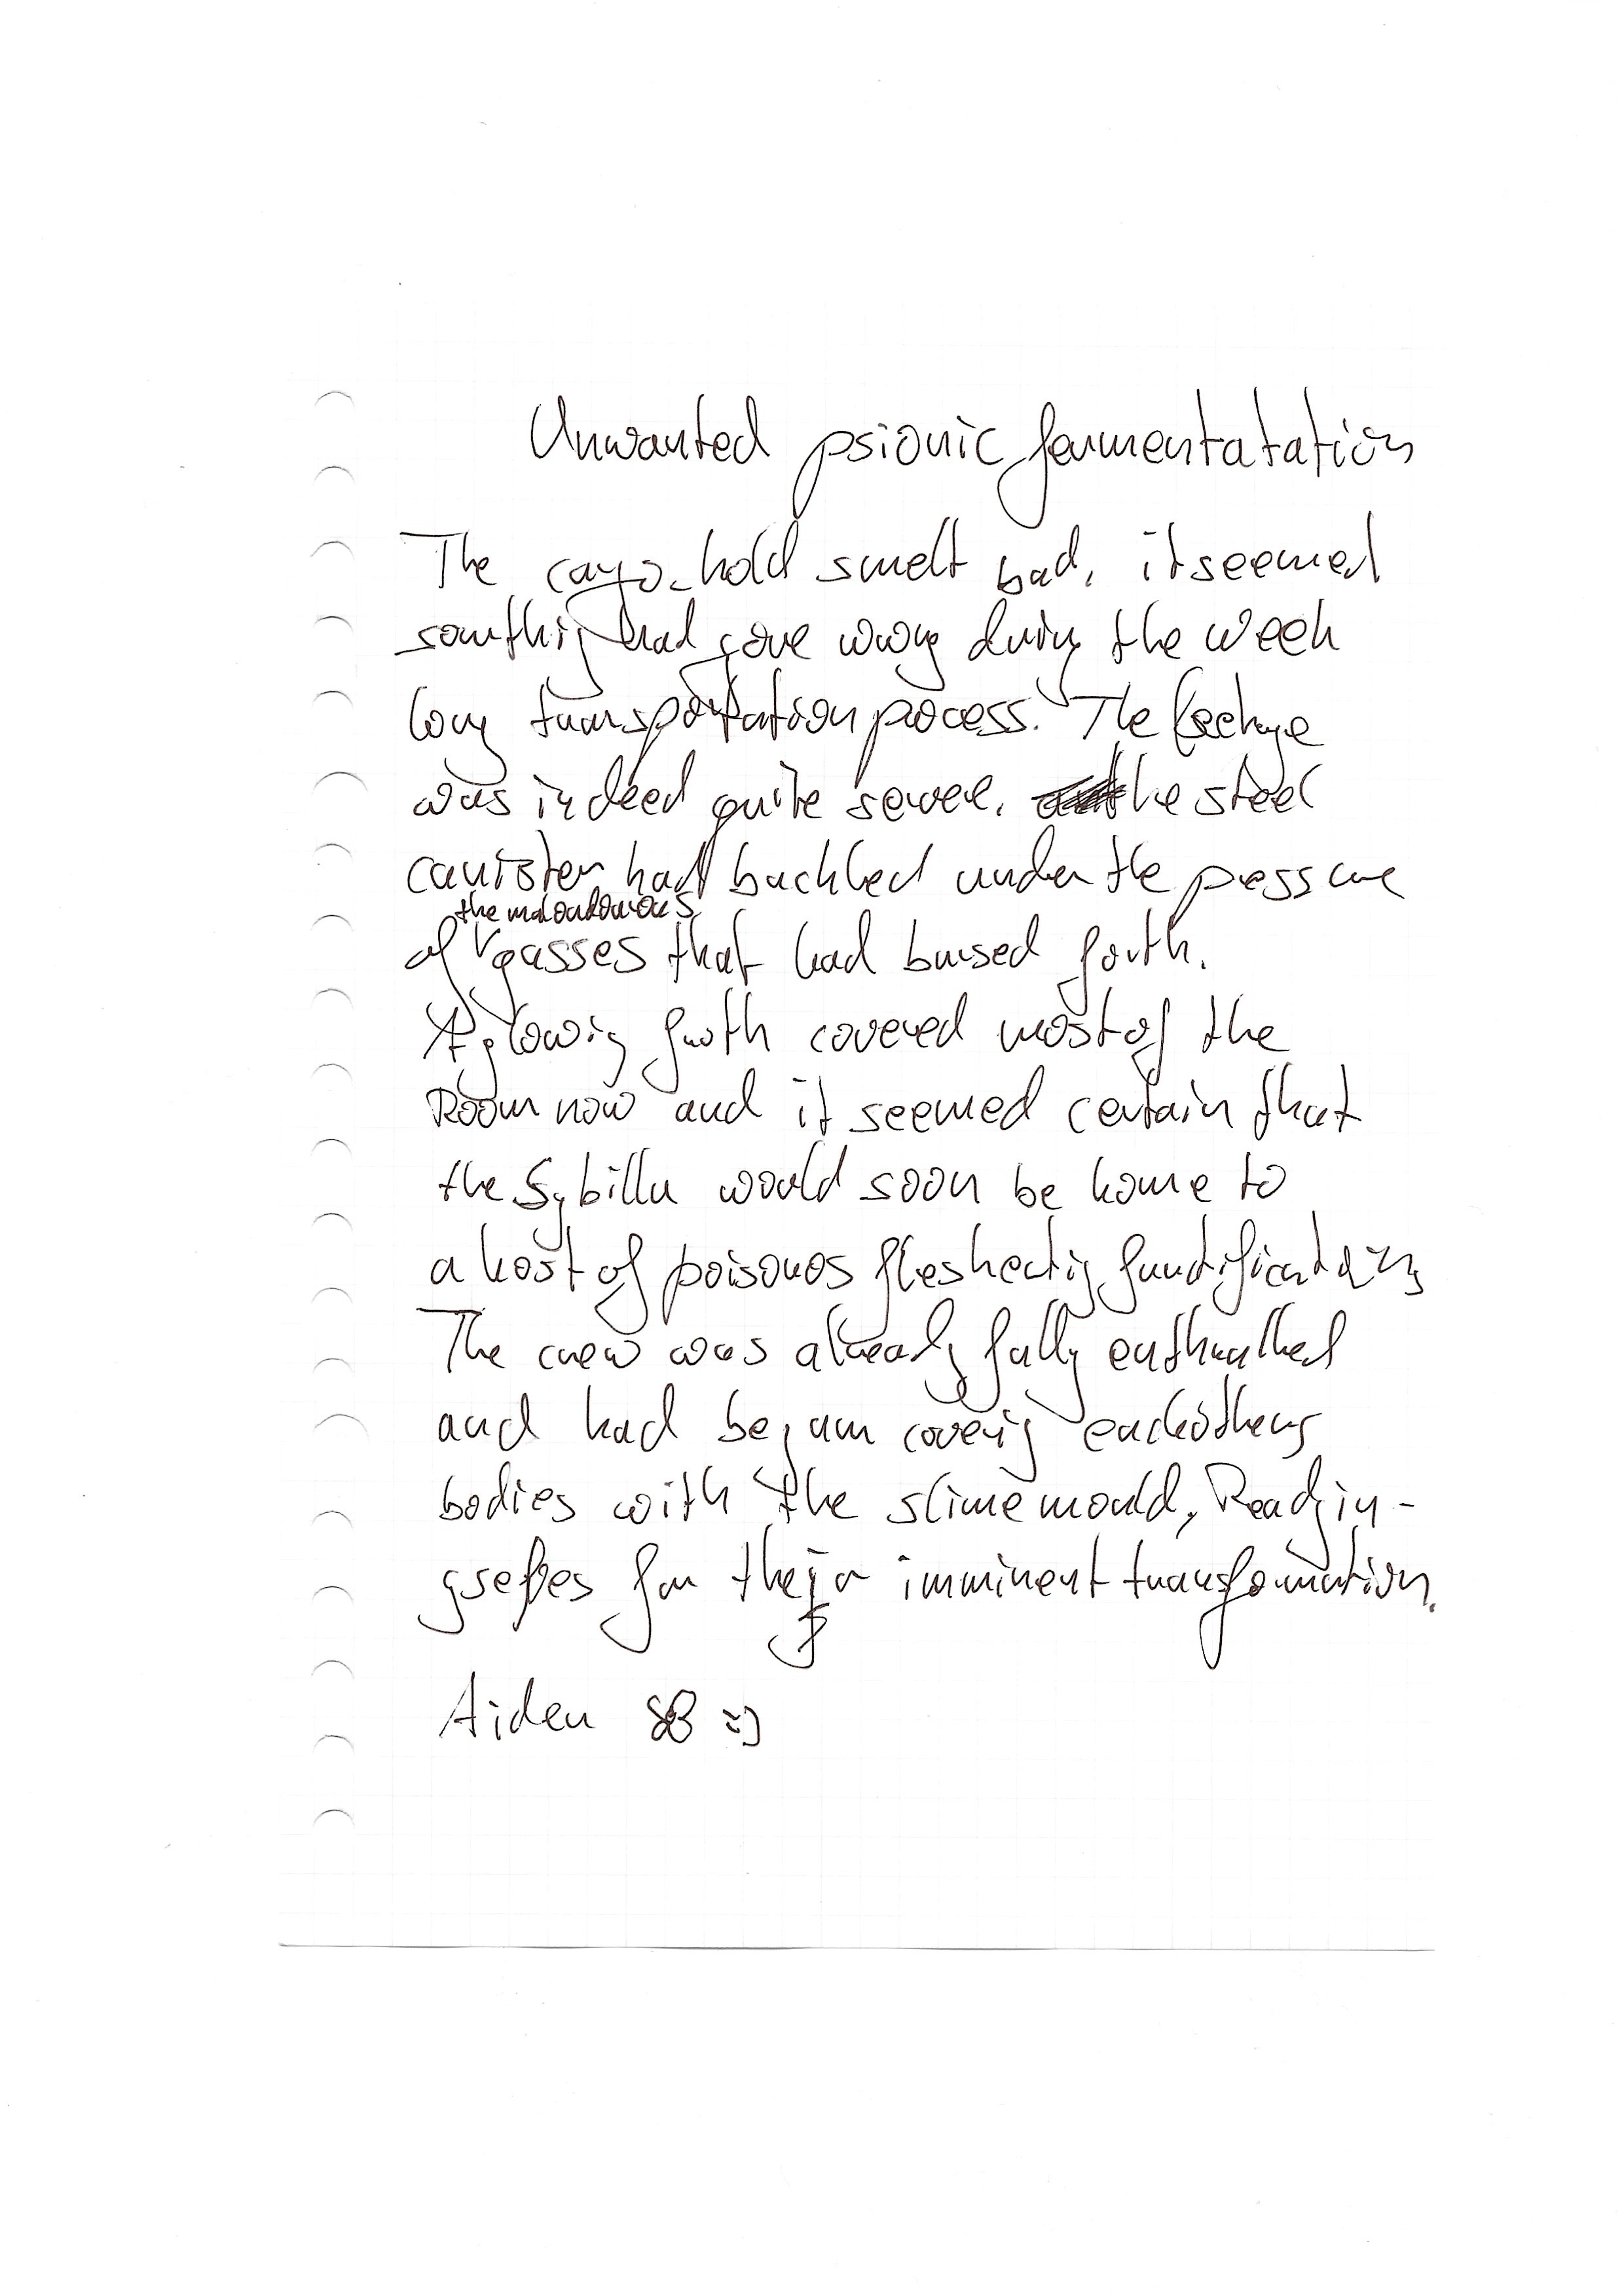 Unwanted psionic fermentatation
The cargo-hold smelt bad, it seemed
somthing had gone wrong during the week
long transportation process. The leckage
was indeed quite severe. the steel
canister had buckled under the pressure
the malondorous
of gasses that had bursed forth.
A glowing froth covered most of the
Room now and it seemed certain that
the Sybilla would soon be home to
a host of poisonos flesheating
The crew was already fully enthralled
and had begun covering eachothers
bodies with the slime mould, Readyin-
for their imminent transformation.
Aiden :)